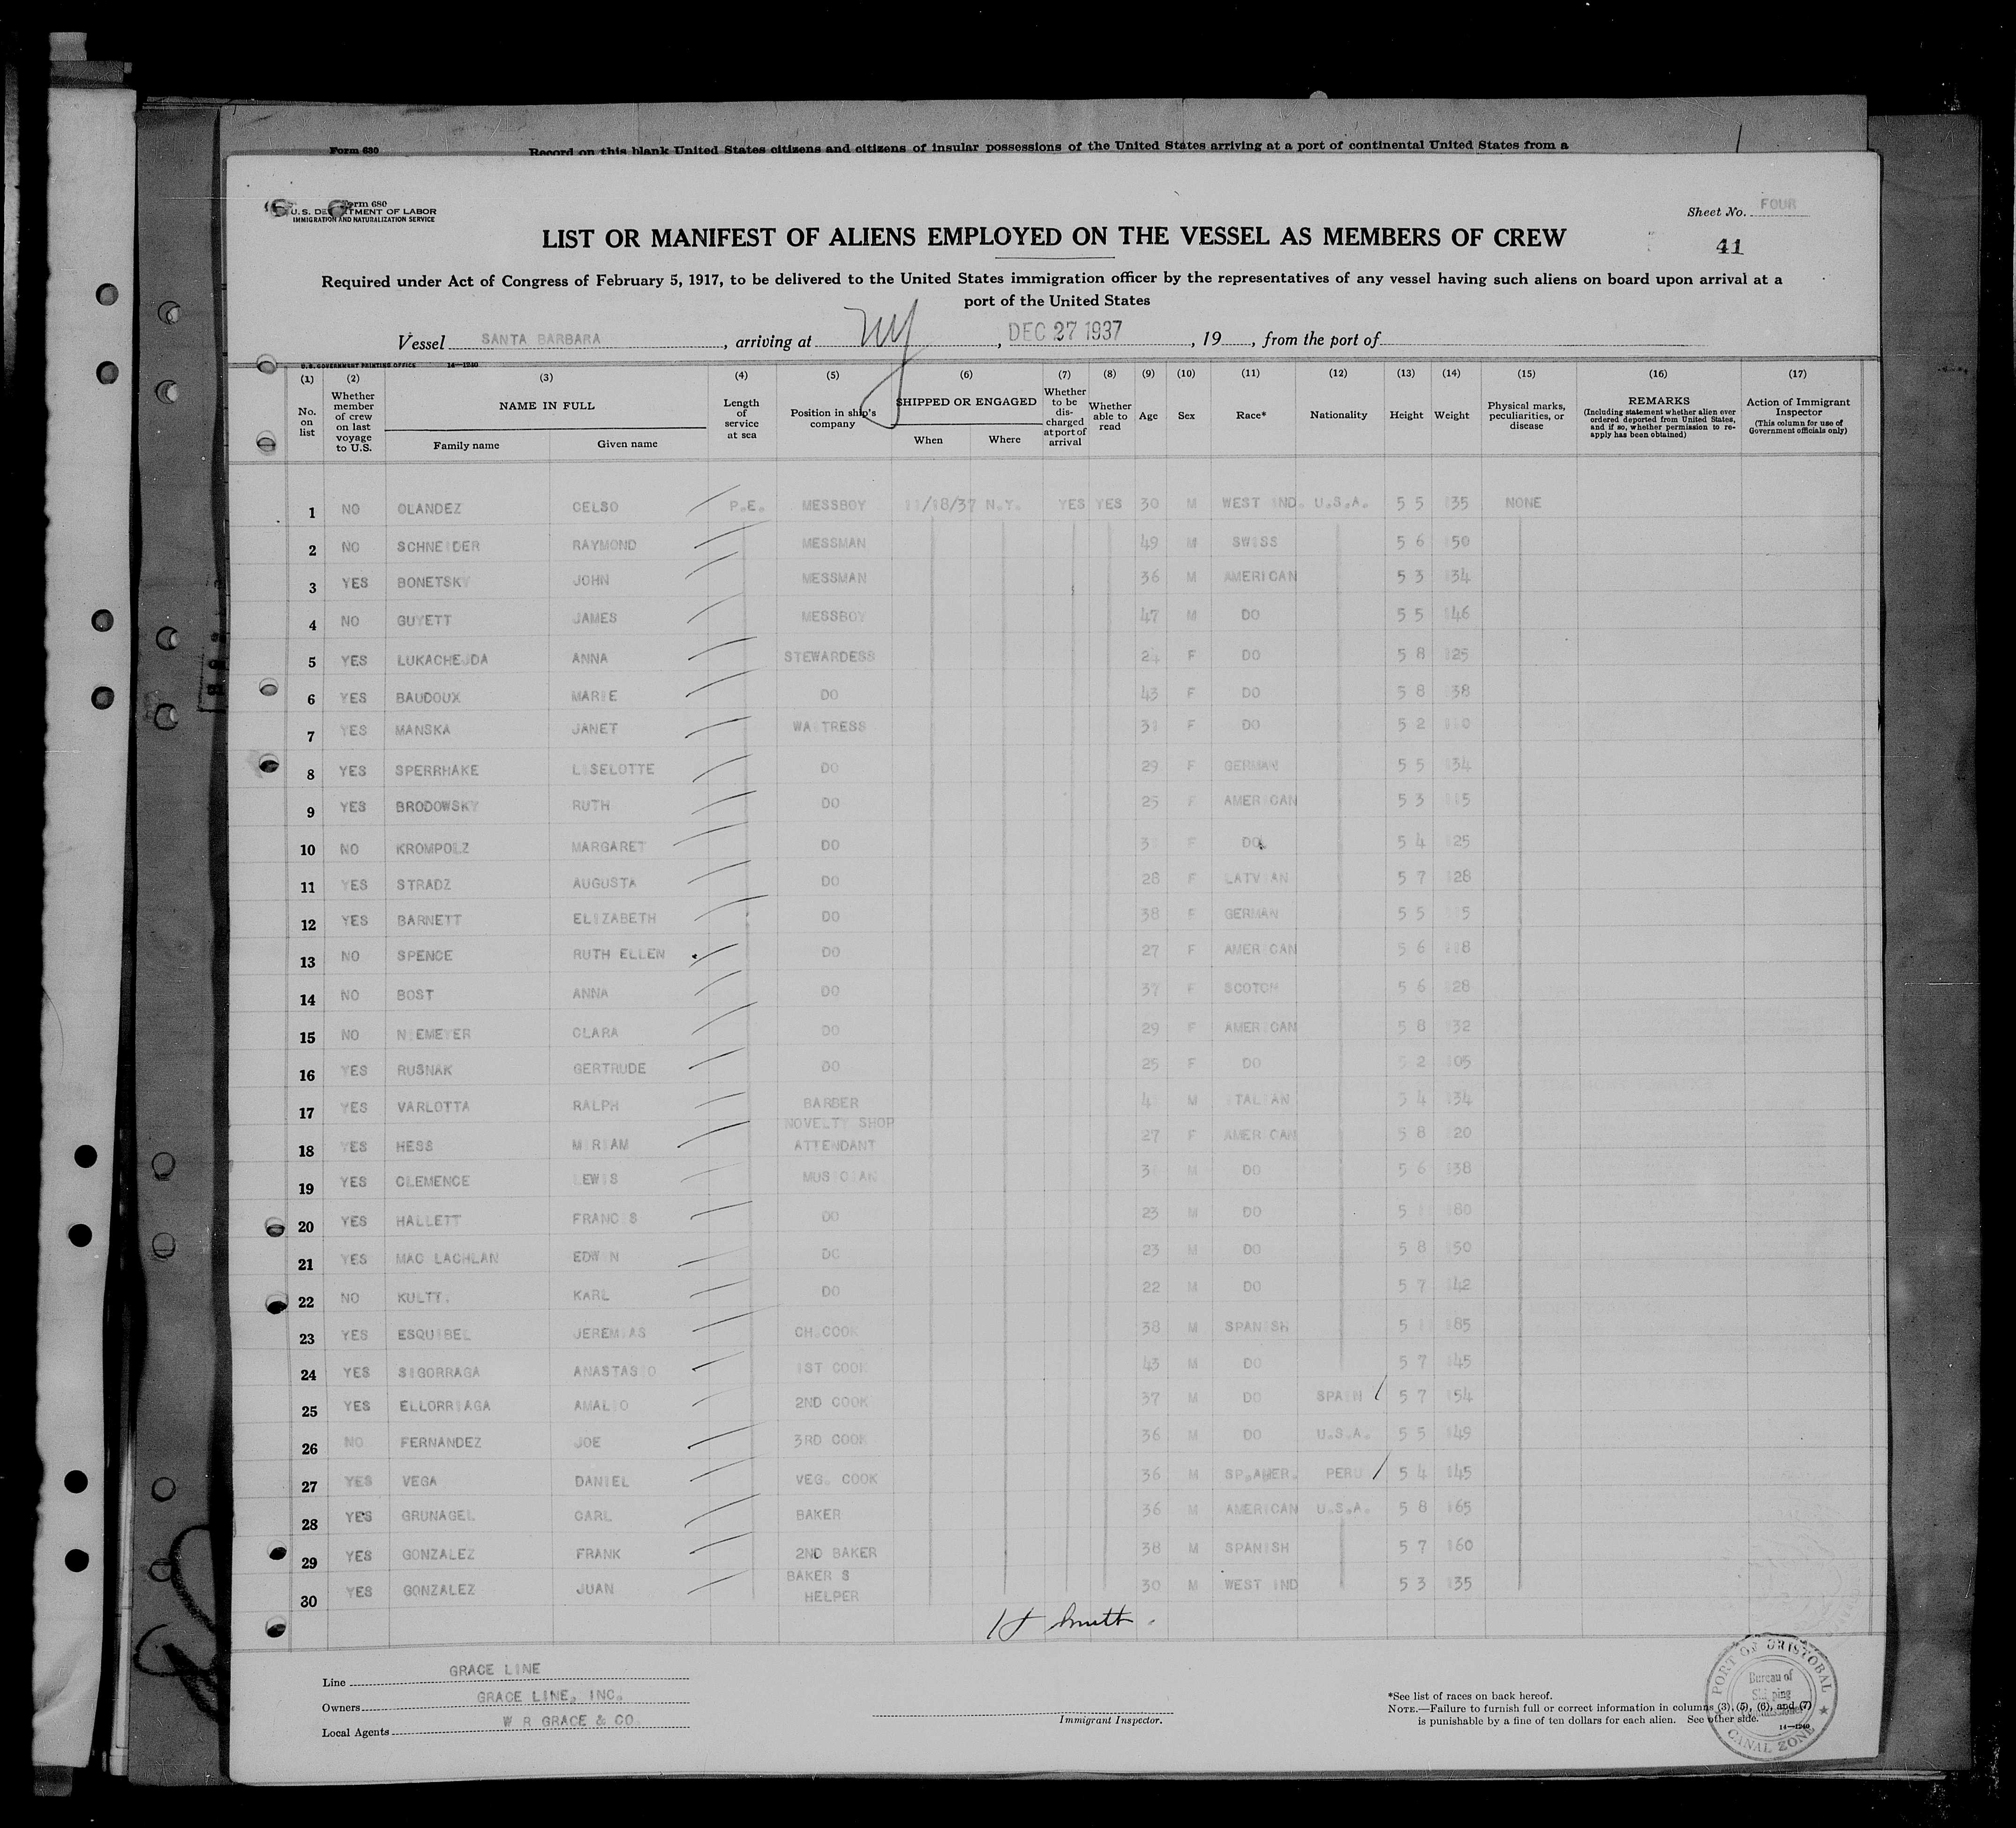 Form 630 Record on this blank United States citizens and citizens of insular possessions of the United States arriving at a port of continental United States from a
Form 680
U.S. DEPARTMENT OF LABOR
IMMIGRATION AND NATURALIZATION SERVICE
Sheet No. FOUR
41
LIST OR MANIFEST OF ALIENS EMPLOYED ON THE VESSEL AS MEMBERS OF CREW
Required under Act of Congress of February 5, 1917, to be delivered to the United States immigration officer by the representatives of any vessel having such aliens on board upon arrival at a
port of the United States
Vessel SANTA BARBARA, arriving at NY, DEC 27 1937, 19, from the port of
U.S. GOVERNMENT PRINTING OFFICE 14—1240
(1) (2) (3) (4) (5) (6) (7) (8) (9) (10) (11) (12) (13) (14) (15) (16) (17)
No. on list
Whether member of crew on last voyage to U.S.
NAME IN FULL
Family name Given name
Length of service at sea
Position in ship's company
SHIPPED OR ENGAGED
When Where
Whether to be discharged at port of arrival
Whether able to read
Age
Sex
Race*
Nationality
Height
Weight
Physical marks, peculiarities, or disease
REMARKS
(Including statement whether alien ever ordered deported from United States, and if so, whether permission to reapply has been obtained)
Action of Immigrant Inspector
(This column for use of Government officials only)
1 NO OLANDEZ CELSO P.E. MESSBOY 11/18/37 N.Y. YES YES 30 M WEST IND. U.S.A. 5 5 135 NONE
2 NO SCHNEIDER RAYMOND MESSMAN 49 M SWISS 5 6 150
3 YES BONETSKY JOHN MESSMAN 36 M AMERICAN 5 3 134
4 NO GUYETT JAMES MESSBOY 47 M DO 5 5 146
5 YES LUKACHEJDA ANNA STEWARDESS 24 F DO 5 8 125
6 YES BAUDOUX MARIE DO 43 F DO 5 8 138
7 YES MANSKA JANET WAITRESS 31 F DO 5 2 110
8 YES SPERRHAKE LISELOTTE DO 29 F GERMAN 5 5 134
9 YES BRODOWSKY RUTH DO 25 F AMERICAN 5 3 115
10 NO KROMPOLZ MARGARET DO 31 F DO 5 4 125
11 YES STRADZ AUGUSTA DO 28 F LATVIAN 5 7 128
12 YES BARNETT ELIZABETH DO 38 F GERMAN 5 5 115
13 NO SPENCE RUTH ELLEN DO 27 F AMERICAN 5 6 118
14 NO BOST ANNA DO 37 F SCOTCH 5 6 128
15 NO NIEMEYER CLARA DO 29 F AMERICAN 5 8 132
16 YES RUSNAK GERTRUDE DO 25 F DO 5 2 105
17 YES VARLOTTA RALPH BARBER 41 M ITALIAN 5 4 134
18 YES HESS MIRIAM NOVELTY SHOP ATTENDANT 27 F AMERICAN 5 8 120
19 YES CLEMENCE LEWIS MUSICIAN 31 M DO 5 6 138
20 YES HALLETT FRANCIS DO 23 M DO 5 180
21 YES MAC LACHLAN EDWIN DO 23 M DO 5 8 150
22 NO KULTTI KARL DO 22 M DO 5 7 142
23 YES ESQUIBEL JEREMIAS CH.COOK 38 M SPANISH 5 185
24 YES SIGORRAGA ANASTASIO 1ST COOK 43 M DO 5 7 145
25 YES ELLORRIAGA AMALIO 2ND COOK 37 M DO SPAIN 5 7 154
26 NO FERNANDEZ JOE 3RD COOK 36 M DO U.S.A. 5 5 149
27 YES VEGA DANIEL VEG. COOK 36 M SP.AMER. PERU 5 4 145
28 YES GRUNAGEL CARL BAKER 36 M AMERICAN U.S.A. 5 8 165
29 YES GONZALEZ FRANK 2ND BAKER 38 M SPANISH 5 7 160
30 YES GONZALEZ JUAN BAKER S HELPER 30 M WEST IND 5 3 135
Line GRACE LINE
Owners GRACE LINE, INC.
Local Agents W R GRACE & CO.
Immigrant Inspector.
*See list of races on back hereof.
NOTE.—Failure to furnish full or correct information in columns (3), (5), (6), and (7)
is punishable by a fine of ten dollars for each alien. See other side. 14—1240
PORT OF CRISTOBAL
Bureau of
Shipping
CANAL ZONE